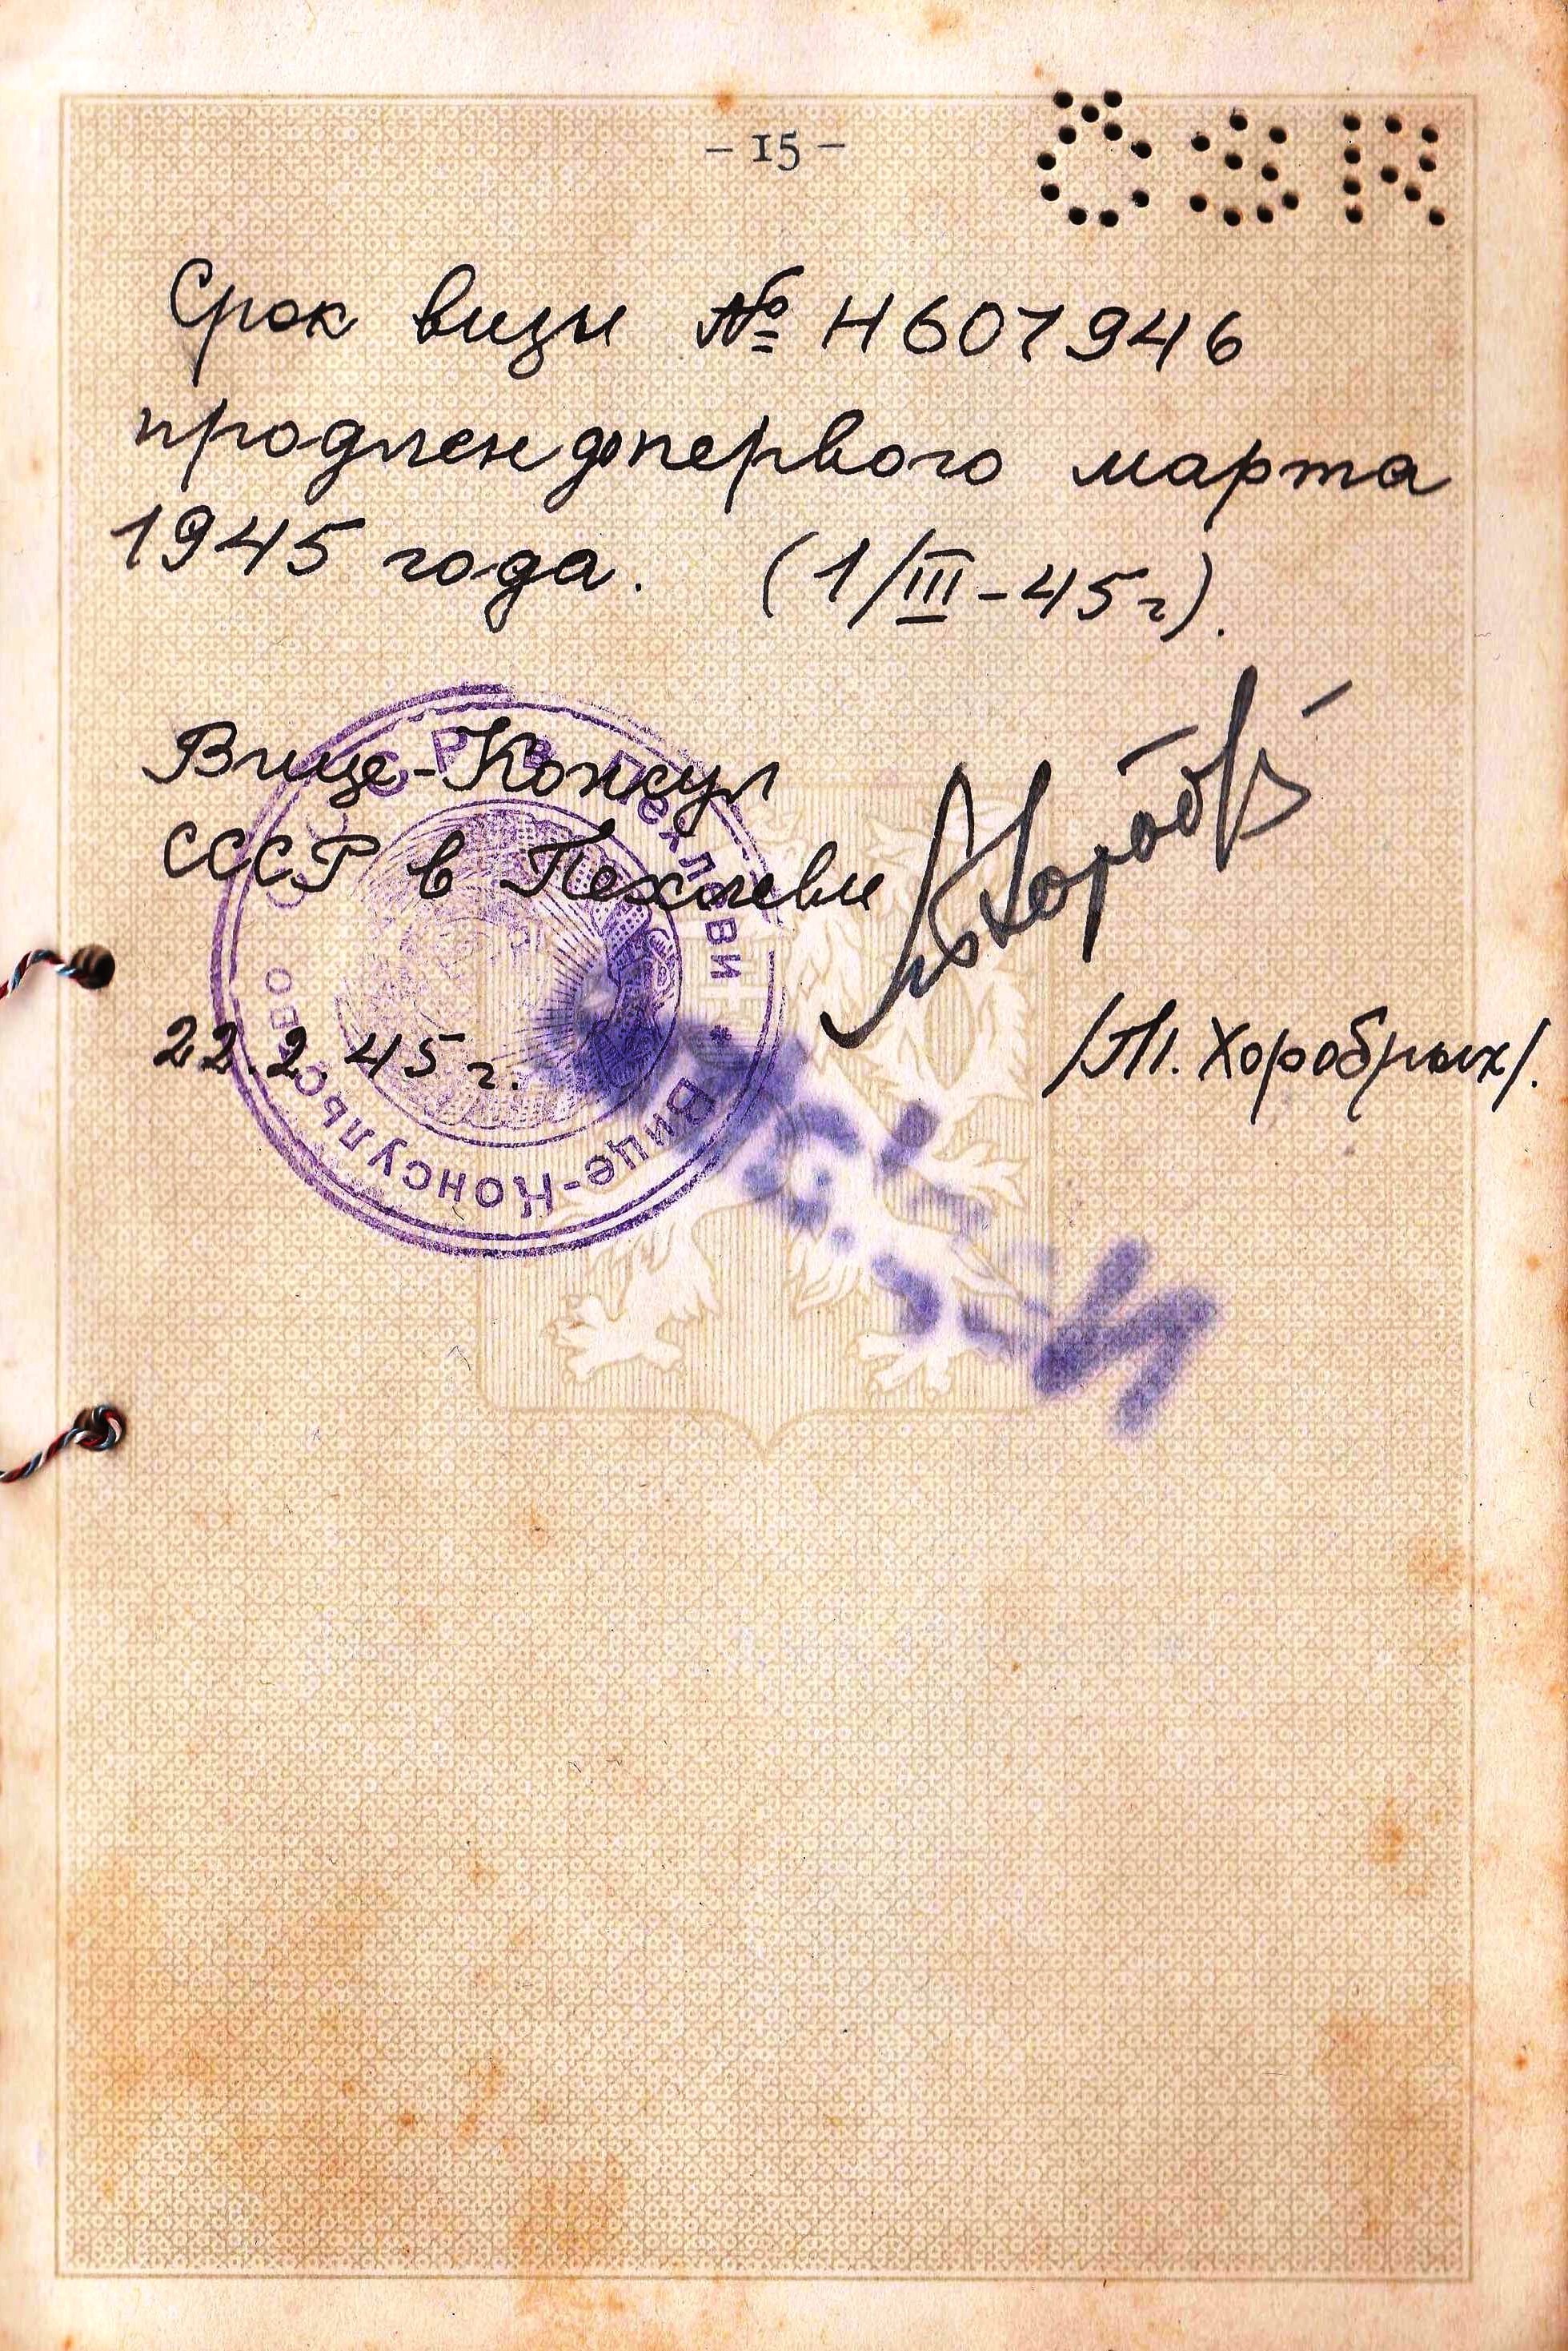 - 15 -
ČSR
Срок визы № Н607946
продлен до первого марта
1945 года. (1/III-45г).
Вице-Консул
СССР в Пехлеви
/М. Хоробрых/.
22.2 45 г.
СССР В Пехлеви * Вице-Консульство